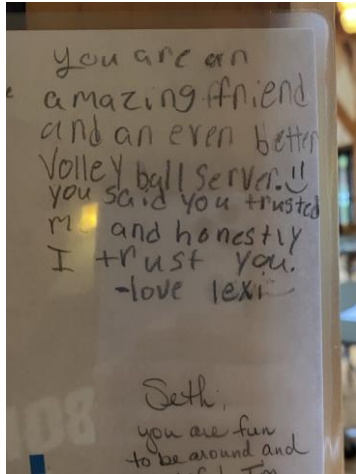 you are an
amazing ffriend
and an even better
Volley ball server. :)
you said you trusted
me and honestly
I trust you.
-love lexi
Seth,
you are fun
to be around and
I'm